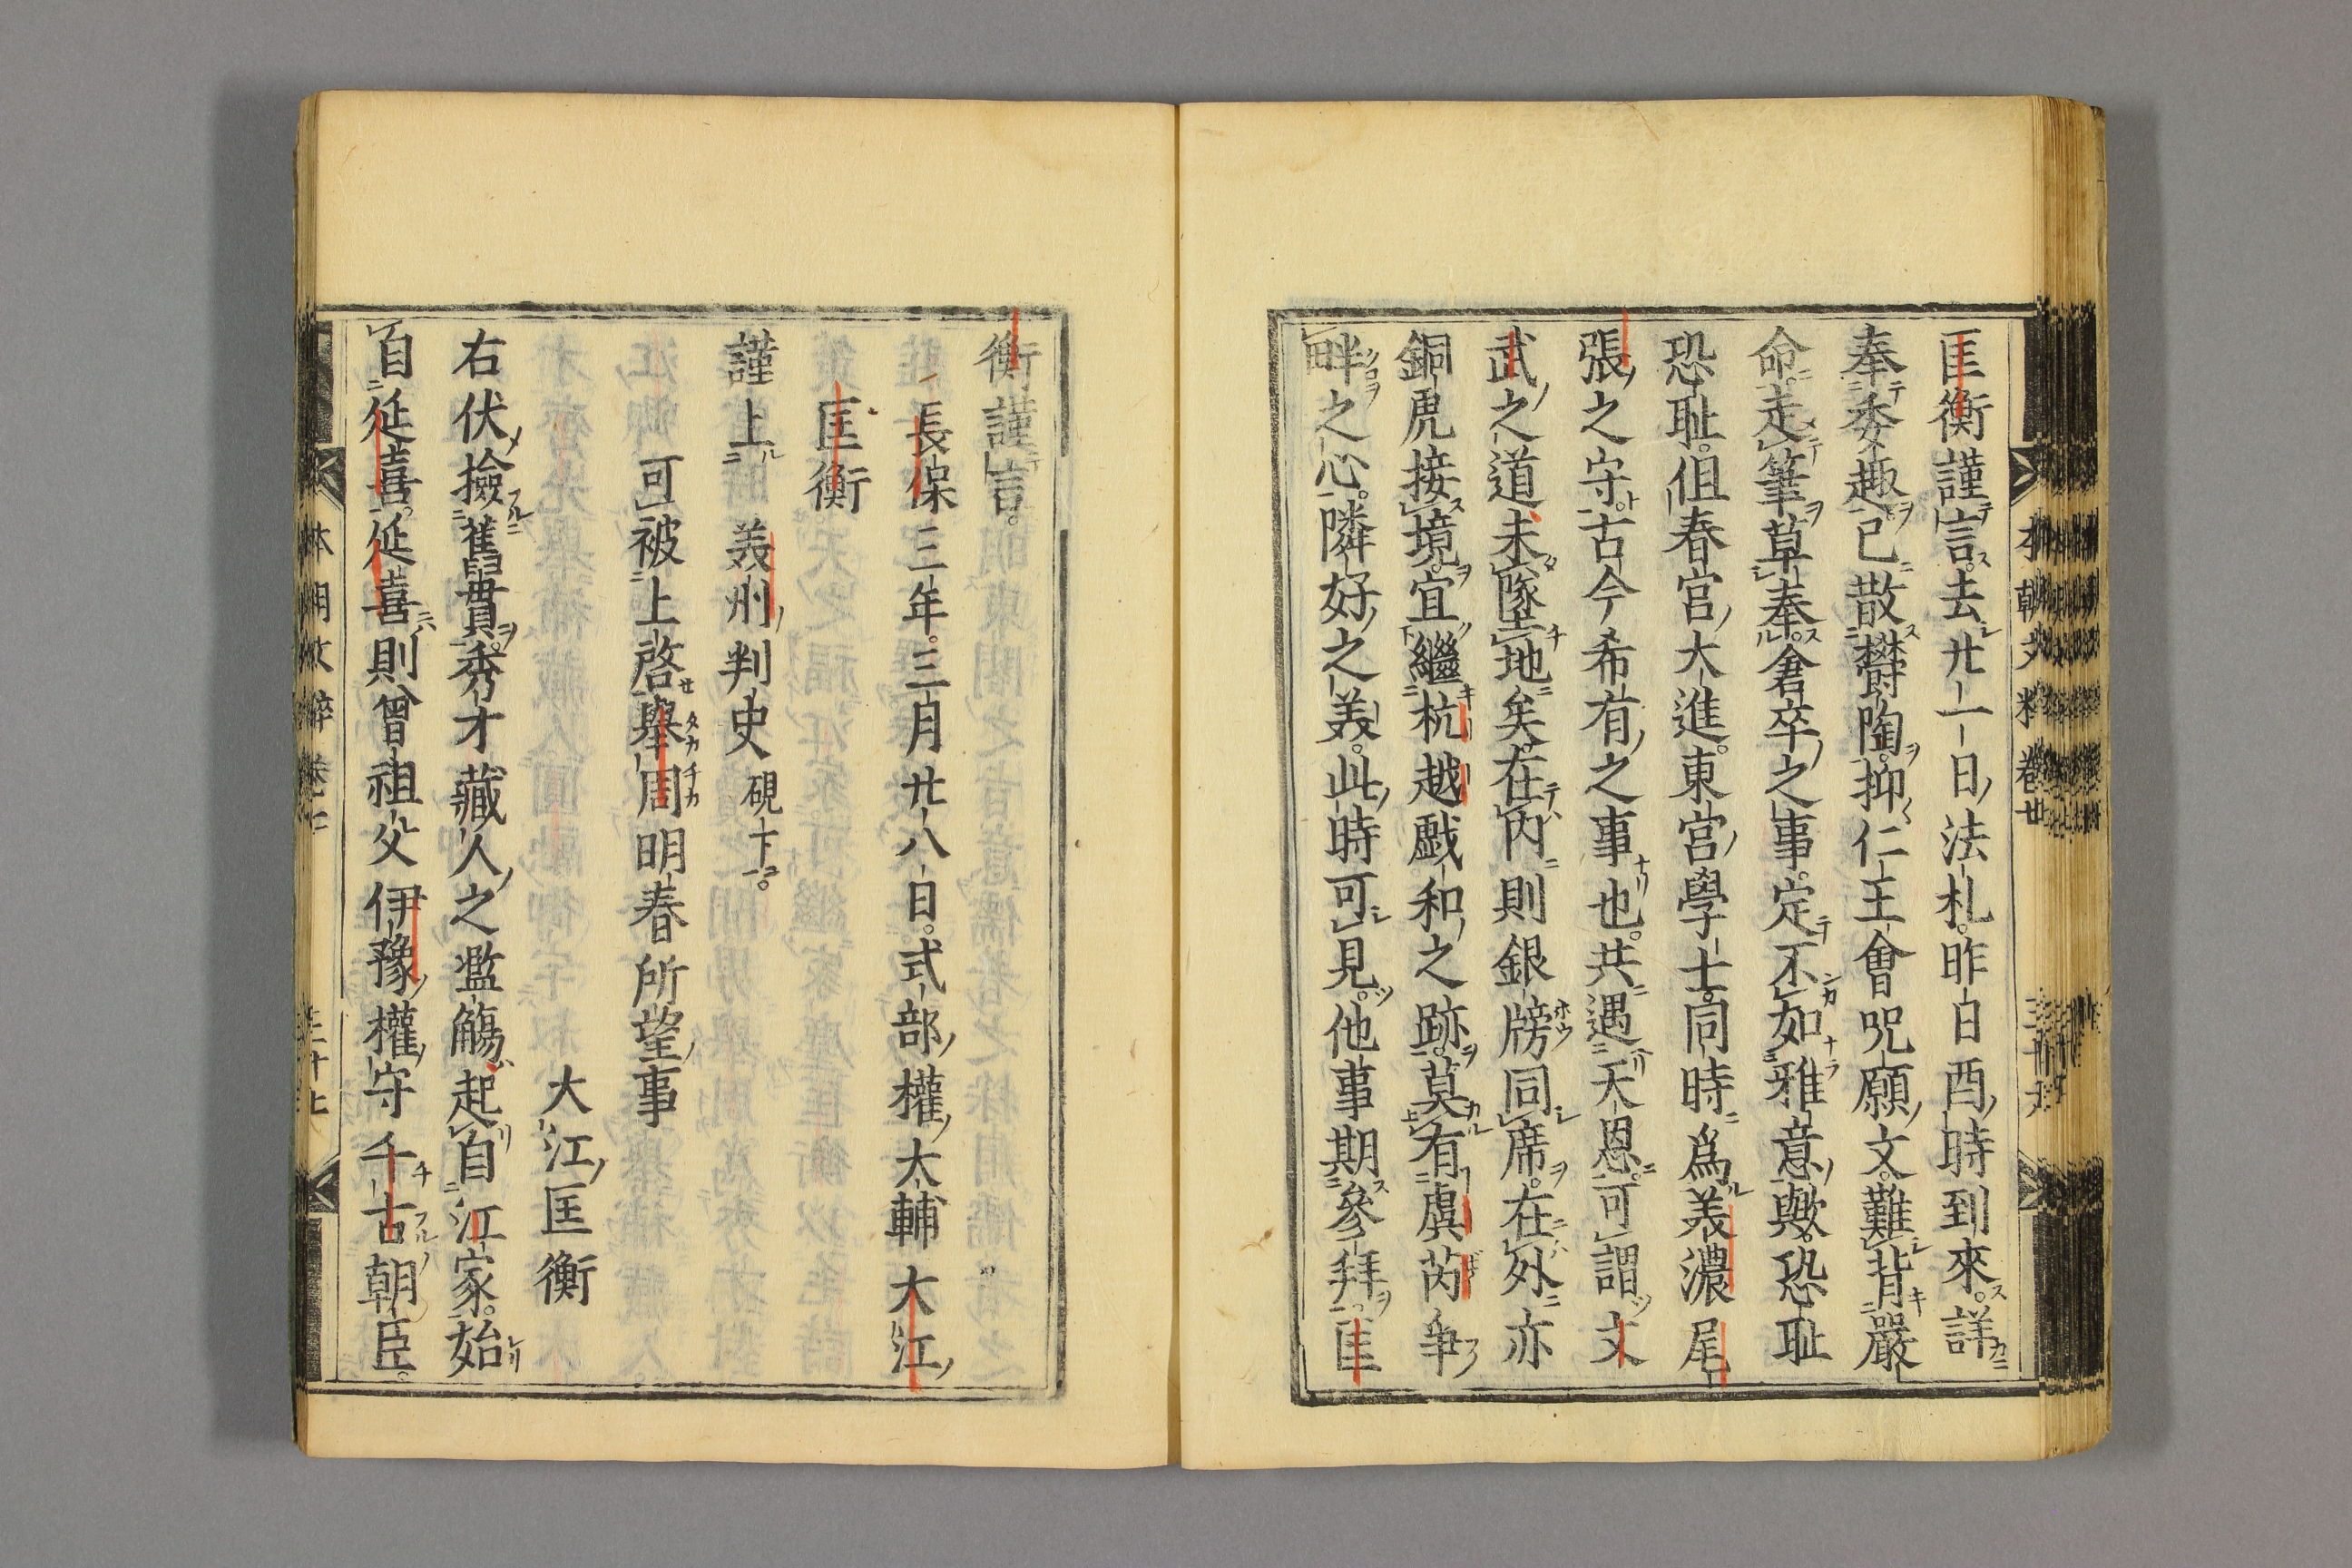 匡衡謹言。去廿一日法札。昨日酉時到來。詳
奉委趣。已散欝陶。抑仁王會呪願文。難背嚴
命。走筆草奉。倉卒之事。定不如雅意歟。恐耻
恐耻。但春宮大進。東宮學士。同時爲義濃尾
張之守。古今希有之事也。共遇天恩。可謂文
武之道未墜地矣。在內則銀牓同席。在外亦
銅虎接境。宜繼杭越戲和之跡。莫有虞芮爭
畔之心。隣好之美。此時可見。他事期參拜。匡
衡謹言。
長保三年。三月廿八日。式部權大輔大江
匡衡
謹上 義州判史硯下。
可被上啓舉周明春所望事
大江匡衡
右伏撿舊貫。秀才藏人之濫觴。起自江家。始
自延喜。延喜則曾祖父伊豫權守千古朝臣。